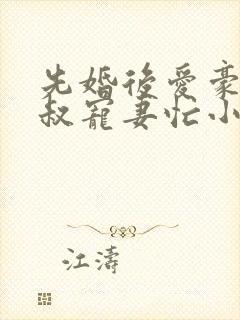 先婚後愛豪
叔寵妻忙小
江濤